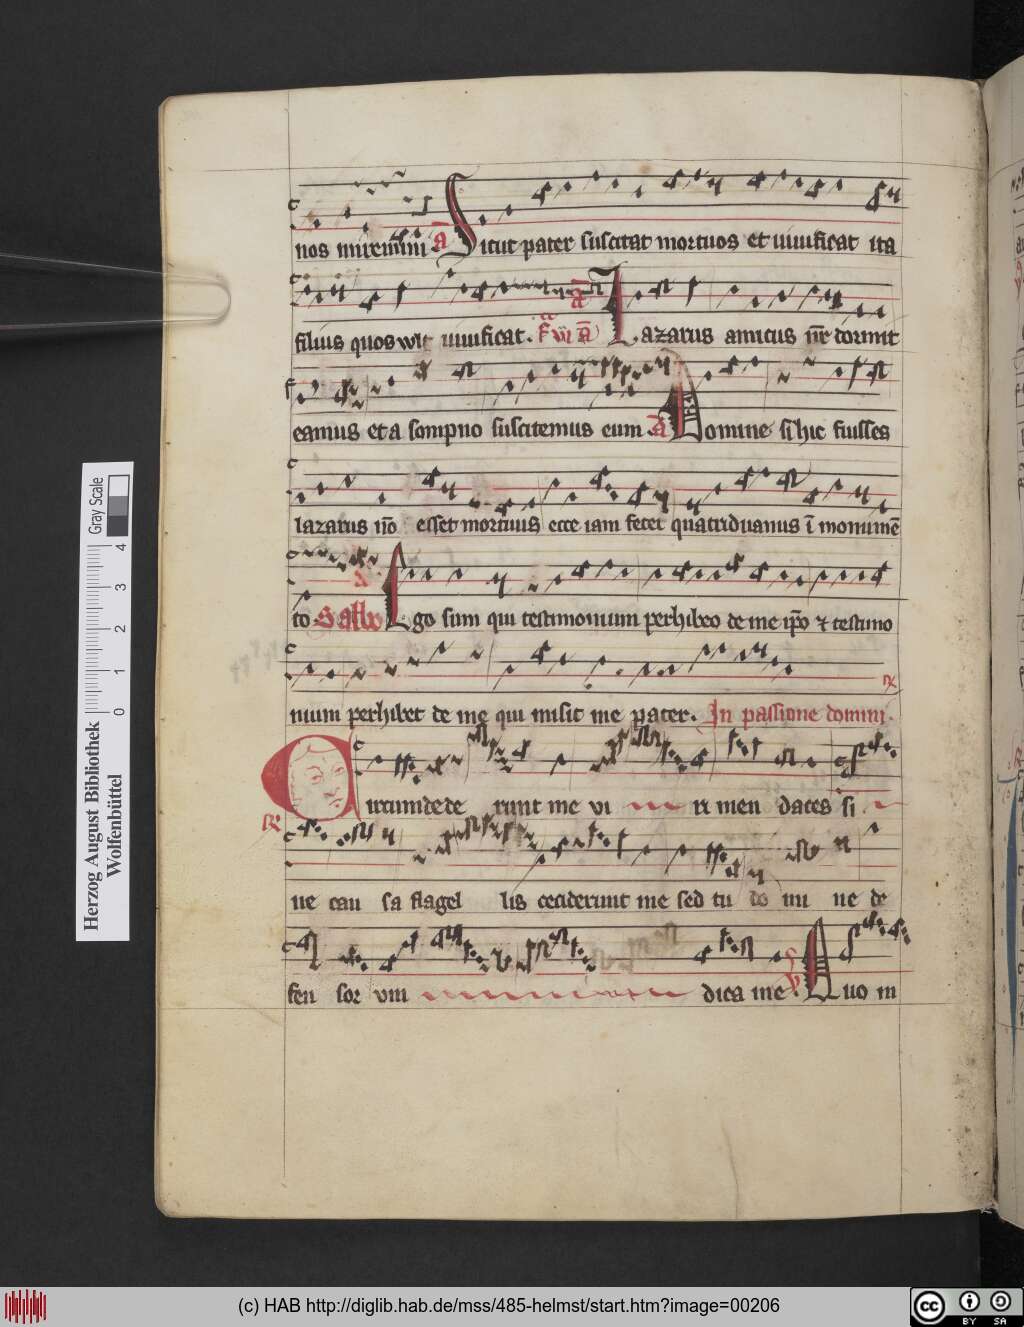 nos unxerunt A Sicut pater suscitat mortuos et uiuificat ita
filius quos wlt uiuificat. F vi A Lazarus amicus nr dormit
eamus et a sompno suscitemus eum A Domine si hic fuisses
lazarus no esset mortuus ecce iam fetet quatriduanus i monume
to Sabbo A Ego sum qui testimonium perhibeo de me ipo et testimo
nium perhibet de me qui misit me pater. In passione domini.
Circumdede runt me vi ri men daces si
ne cau sa flagel lis ceciderunt me sed tu do mi ne de
fen sor vin dica me. V Quo in
Herzog August Bibliothek
Wolfenbüttel
Gray Scale
0 1 2 3 4
(c) HAB http://diglib.hab.de/mss/485-helmst/start.htm?image=00206
cc BY SA